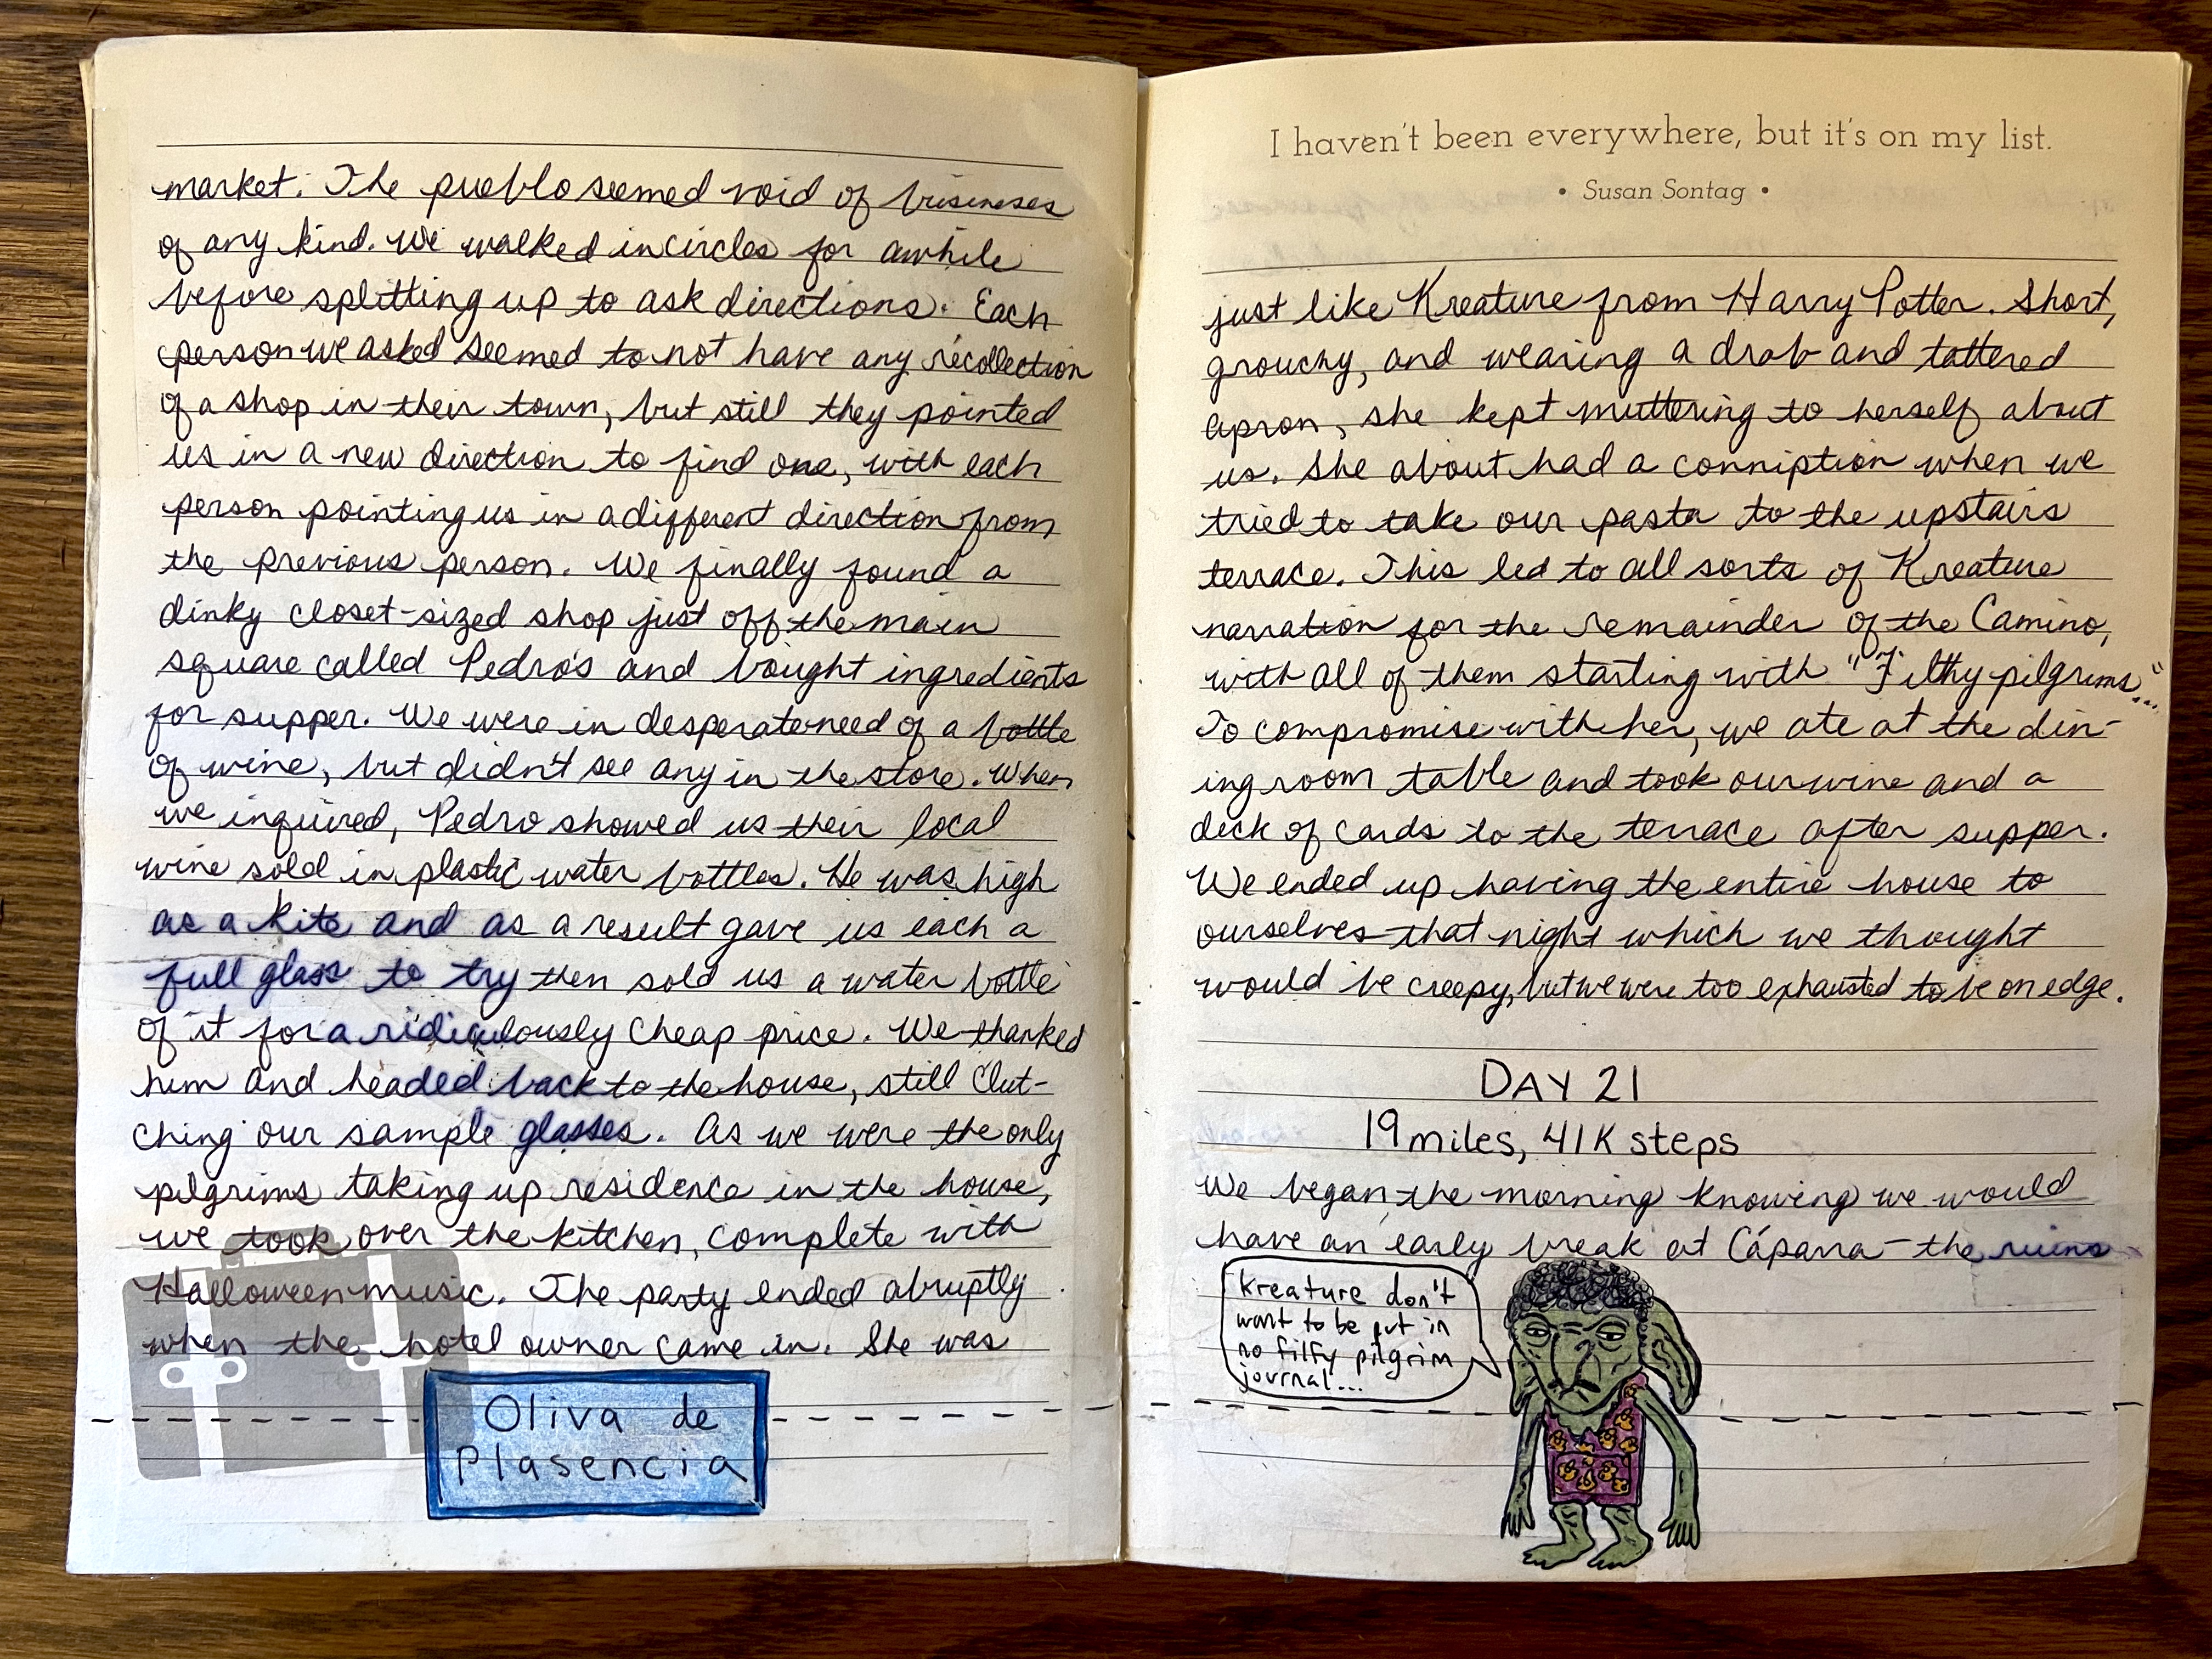 market. The pueblo seemed void of businesses
of any kind. We walked in circles for awhile
before splitting up to ask directions. Each
person we asked seemed to not have any recollection
of a shop in their town, but still they pointed
us in a new direction to find one, with each
person pointing us in a different direction from
the previous person. We finally found a
dinky closet-sized shop just off the main
square called Pedro's and bought ingredients
for supper. We were in desperate need of a bottle
of wine, but didn't see any in the store. When
we inquired, Pedro showed us their local
wine sold in plastic water bottles. He was high
as a kite and as a result gave us each a
full glass to try then sold us a water bottle
of it for a ridiculously cheap price. We thanked
him and headed back to the house, still clut-
ching our sample glasses. As we were the only
pilgrims taking up residence in the house,
we took over the kitchen, complete with
Halloween music. The party ended abruptly
when the hotel owner came in. She was
Oliva de
Plasencia
I haven't been everywhere, but it's on my list.
• Susan Sontag •
just like Kreature from Harry Potter. Short,
grouchy, and wearing a drab and tattered
apron, she kept muttering to herself about
us. She about had a conniption when we
tried to take our pasta to the upstairs
terrace. This led to all sorts of Kreature
narration for the remainder of the Camino,
with all of them starting with "Filthy pilgrims..."
To compromise with her, we ate at the din-
ing room table and took our wine and a
deck of cards to the terrace after supper.
We ended up having the entire house to
ourselves that night which we thought
would be creepy, but we were too exhausted to be on edge.
DAY 21
19 miles, 41K steps
We began the morning knowing we would
have an early break at Cáparra - the ruins
Kreature don't
want to be put in
no filfy pilgrim
journal...